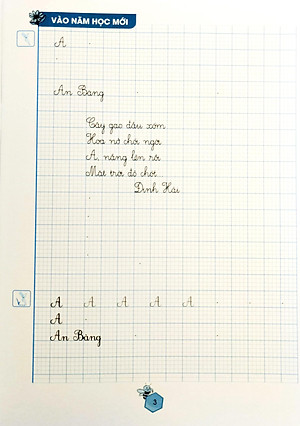 VÀO NĂM HỌC MỚI
A
An Bàng
Cây gạo đầu xóm
Hoa nở chói ngời
A, nắng lên rồi
Mặt trời đỏ chót
Định Hải
A A A A A
A
An Bàng
3